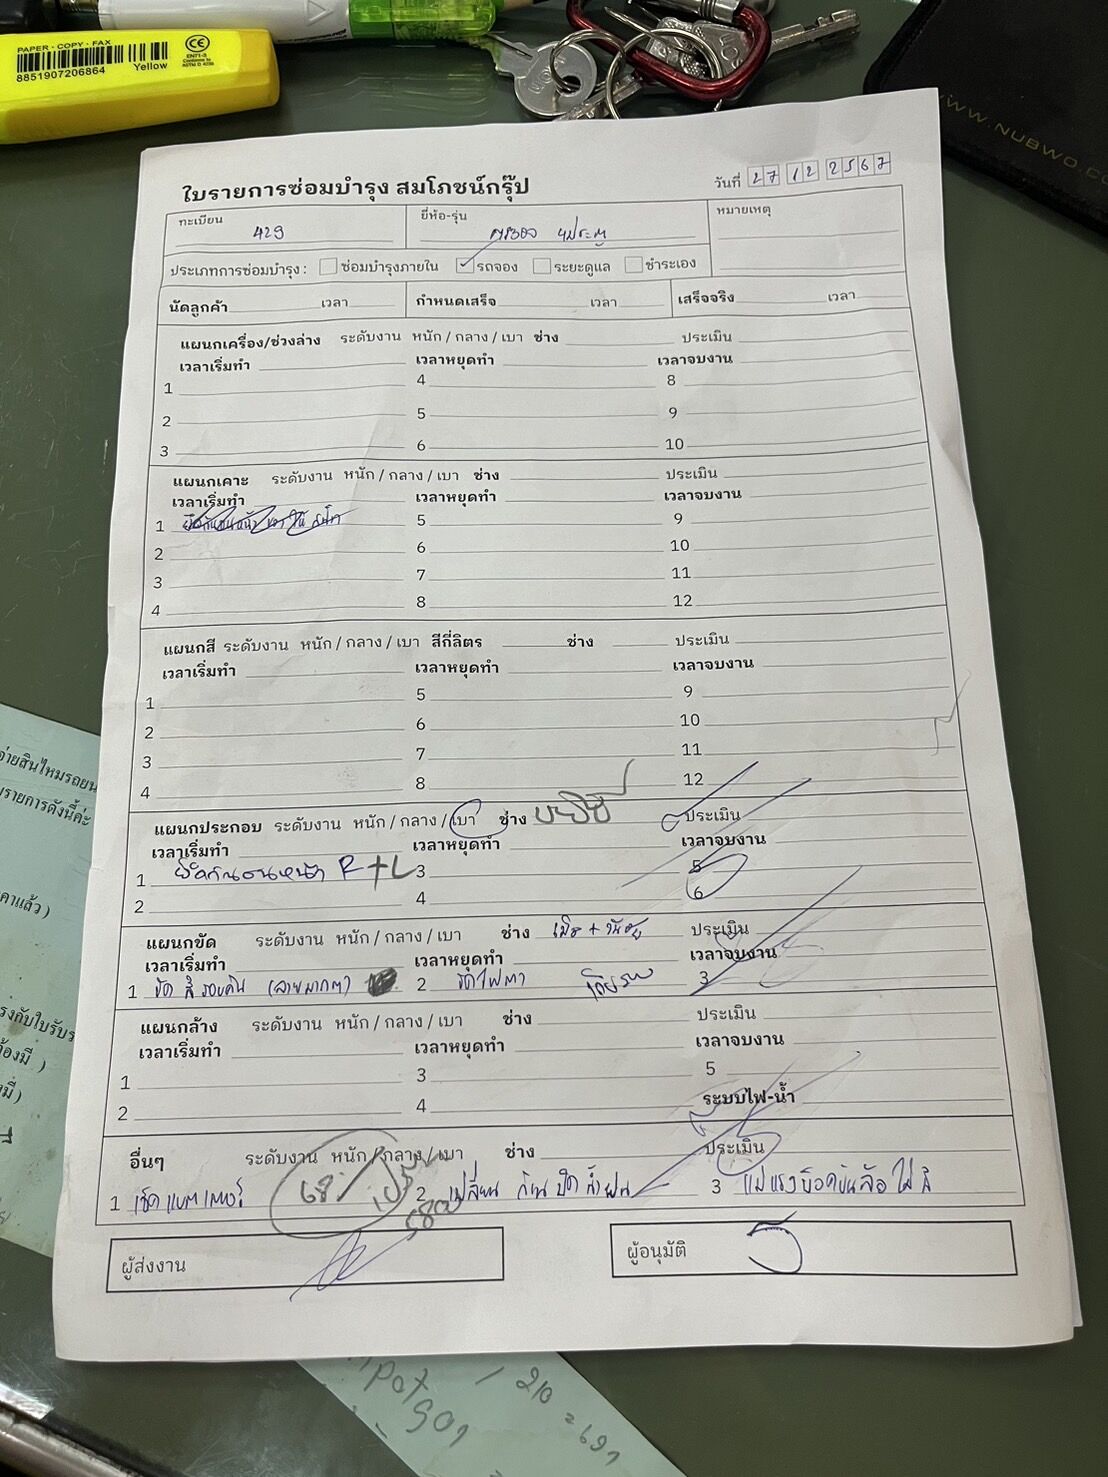 PAPER · COPY · FAX
8851907206864 Yellow
CE
EN71-3
Conforms to
ASTM D 4236
WWW.NUBWO.CO
ใบรายการซ่อมบำรุง สมโภชน์กรุ๊ป
วันที่ 27 12 2567
ทะเบียน 429
ยี่ห้อ-รุ่น 4ประตู
หมายเหตุ
ประเภทการซ่อมบำรุง : ซ่อมบำรุงภายใน รถจอง ระยะดูแล ชำระเอง
นัดลูกค้า เวลา กำหนดเสร็จ เวลา เสร็จจริง เวลา
แผนกเครื่อง/ช่วงล่าง ระดับงาน หนัก / กลาง / เบา ช่าง ประเมิน
เวลาเริ่มทำ เวลาหยุดทำ เวลาจบงาน
1 4 8
2 5 9
3 6 10
แผนกเคาะ ระดับงาน หนัก / กลาง / เบา ช่าง ประเมิน
เวลาเริ่มทำ เวลาหยุดทำ เวลาจบงาน
1 5 9
2 6 10
3 7 11
4 8 12
แผนกสี ระดับงาน หนัก / กลาง / เบา สีกี่ลิตร ช่าง ประเมิน
เวลาเริ่มทำ เวลาหยุดทำ เวลาจบงาน
1 5 9
2 6 10
3 7 11
4 8 12
แผนกประกอบ ระดับงาน หนัก / กลาง / เบา ช่าง ประเมิน
เวลาเริ่มทำ เวลาหยุดทำ เวลาจบงาน
1 ยึดกันชนหน้า R+L 3 5
2 4 6
แผนกขัด ระดับงาน หนัก / กลาง / เบา ช่าง ประเมิน
เวลาเริ่มทำ เวลาหยุดทำ เวลาจบงาน
1 ขัด สี รอบคัน (ลายมากๆ) 2 ขัดไฟตา 3
แผนกล้าง ระดับงาน หนัก / กลาง / เบา ช่าง ประเมิน
เวลาเริ่มทำ เวลาหยุดทำ เวลาจบงาน
1 3 5
2 4 ระบบไฟ-น้ำ
อื่นๆ ระดับงาน หนัก / กลาง / เบา ช่าง ประเมิน
1 เช็ค แบตเตอรี่ 68% 2 เปลี่ยน ก้าน ปัด น้ำฝน 3 แม่แรง บ๊อคขันล้อ ใส่
ผู้ส่งงาน
ผู้อนุมัติ
จ่ายสินไหมรถยน
รายการดังนี้ค่ะ
คาแล้ว )
รงกับใบรับร
้องมี )
1 210 = 691